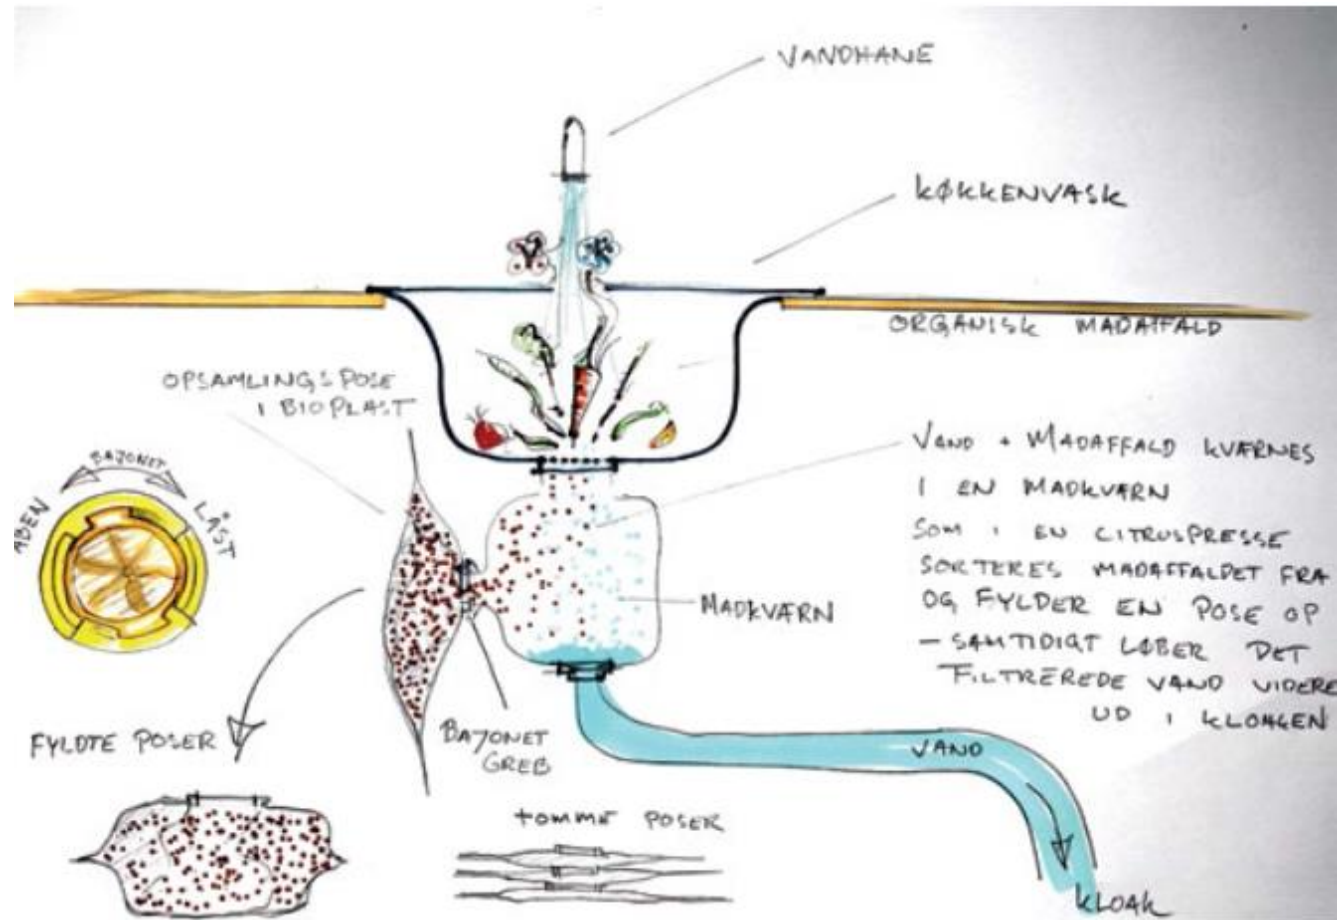 VANDHANE
KØKKENVASK
ORGANISK MADAFFALD
OPSAMLINGSPOSE
I BIOPLAST
BAJONET
ÅBEN
LÅST
VAND + MADAFFALD KVÆRNES
I EN MADKVÆRN
SOM I EN CITRUSPRESSE
SORTERES MADAFFALDET FRA
OG FYLDER EN POSE OP
– SAMTIDIGT LØBER DET
FILTREREDE VAND VIDERE
UD I KLOAKEN
MADKVÆRN
BAJONET
GREB
FYLDTE POSER
VAND
TOMME POSER
KLOAK